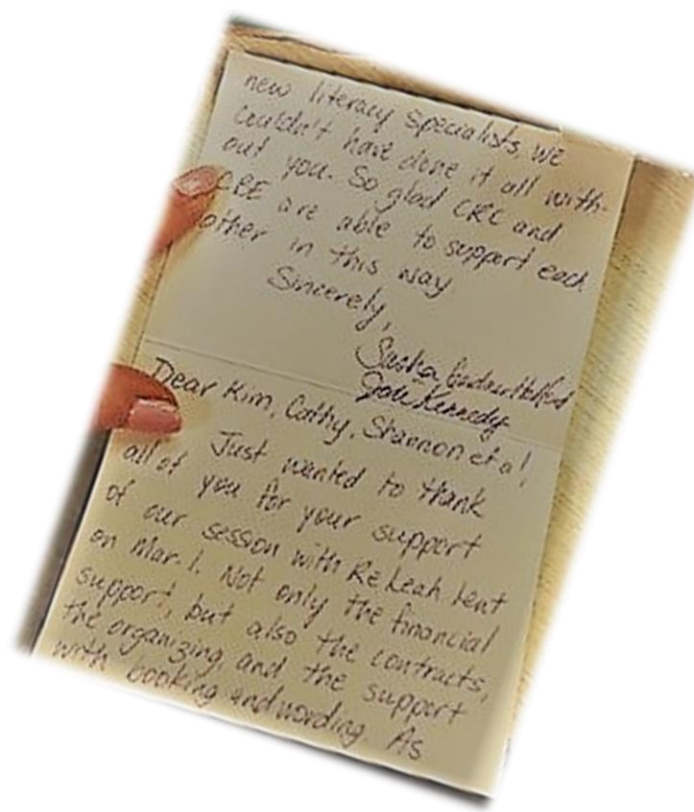 new literacy specialists, we
couldn't have done it all with-
out you. So glad CRC and
CBE are able to support each
other in this way
Sincerely,
Kennedy
Dear Kim, Cathy, Shannon et al,
Just wanted to thank
all of you for your support
of our session with ReLeah Lent
on Mar. 1. Not only the financial
support, but also the contracts,
the organizing, and the support
with booking and wording. As